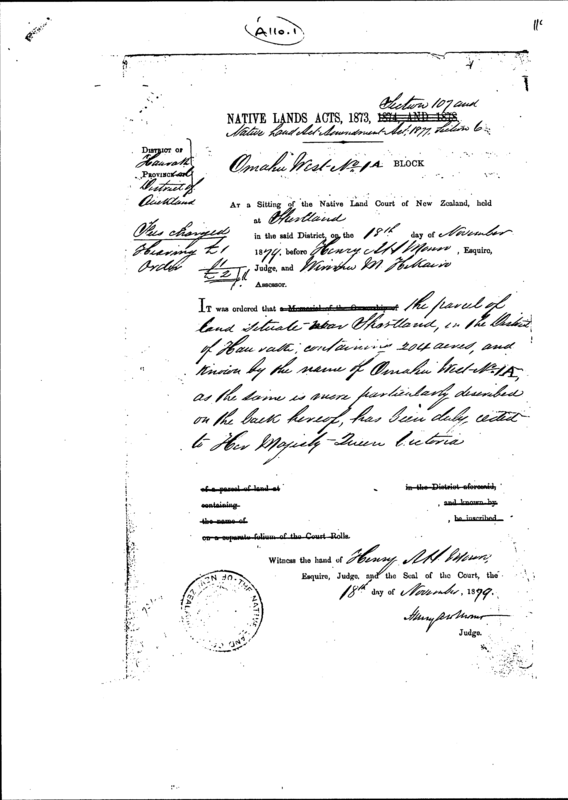 A110.1
11c
Section 107 and
NATIVE LANDS ACTS, 1873, 1874, AND 1878
Native Land Act Amendment Act 1877, Section 6
DISTRICT OF
Hauraki
PROVINCE and
District of
Auckland
Omahu West No. 1A BLOCK
AT a Sitting of the Native Land Court of New Zealand, held
at Shortland
in the said District, on the 18th day of November
1879, before Henry , Esquire,
Judge, and
Assessor.
Fees charged
Hearing £1
Order £1
£2
IT was ordered that a Memorial of the Ownership of the parcel of
land situate near Shortland, in the District
of Hauraki, containing 204 acres, and
known by the name of Omahu West No. 1A,
as the same is more particularly described
on the back hereof, has been duly ceded
to Her Majesty Queen Victoria
of a parcel of land at in the District aforesaid,
containing and known by
the name of , be inscribed
on a separate folium of the Court Rolls.
Witness the hand of Henry
Esquire, Judge, and the Seal of the Court, the
18th day of November, 1879.
Judge.
THE NATIVE LAND OF NEW ZEAL